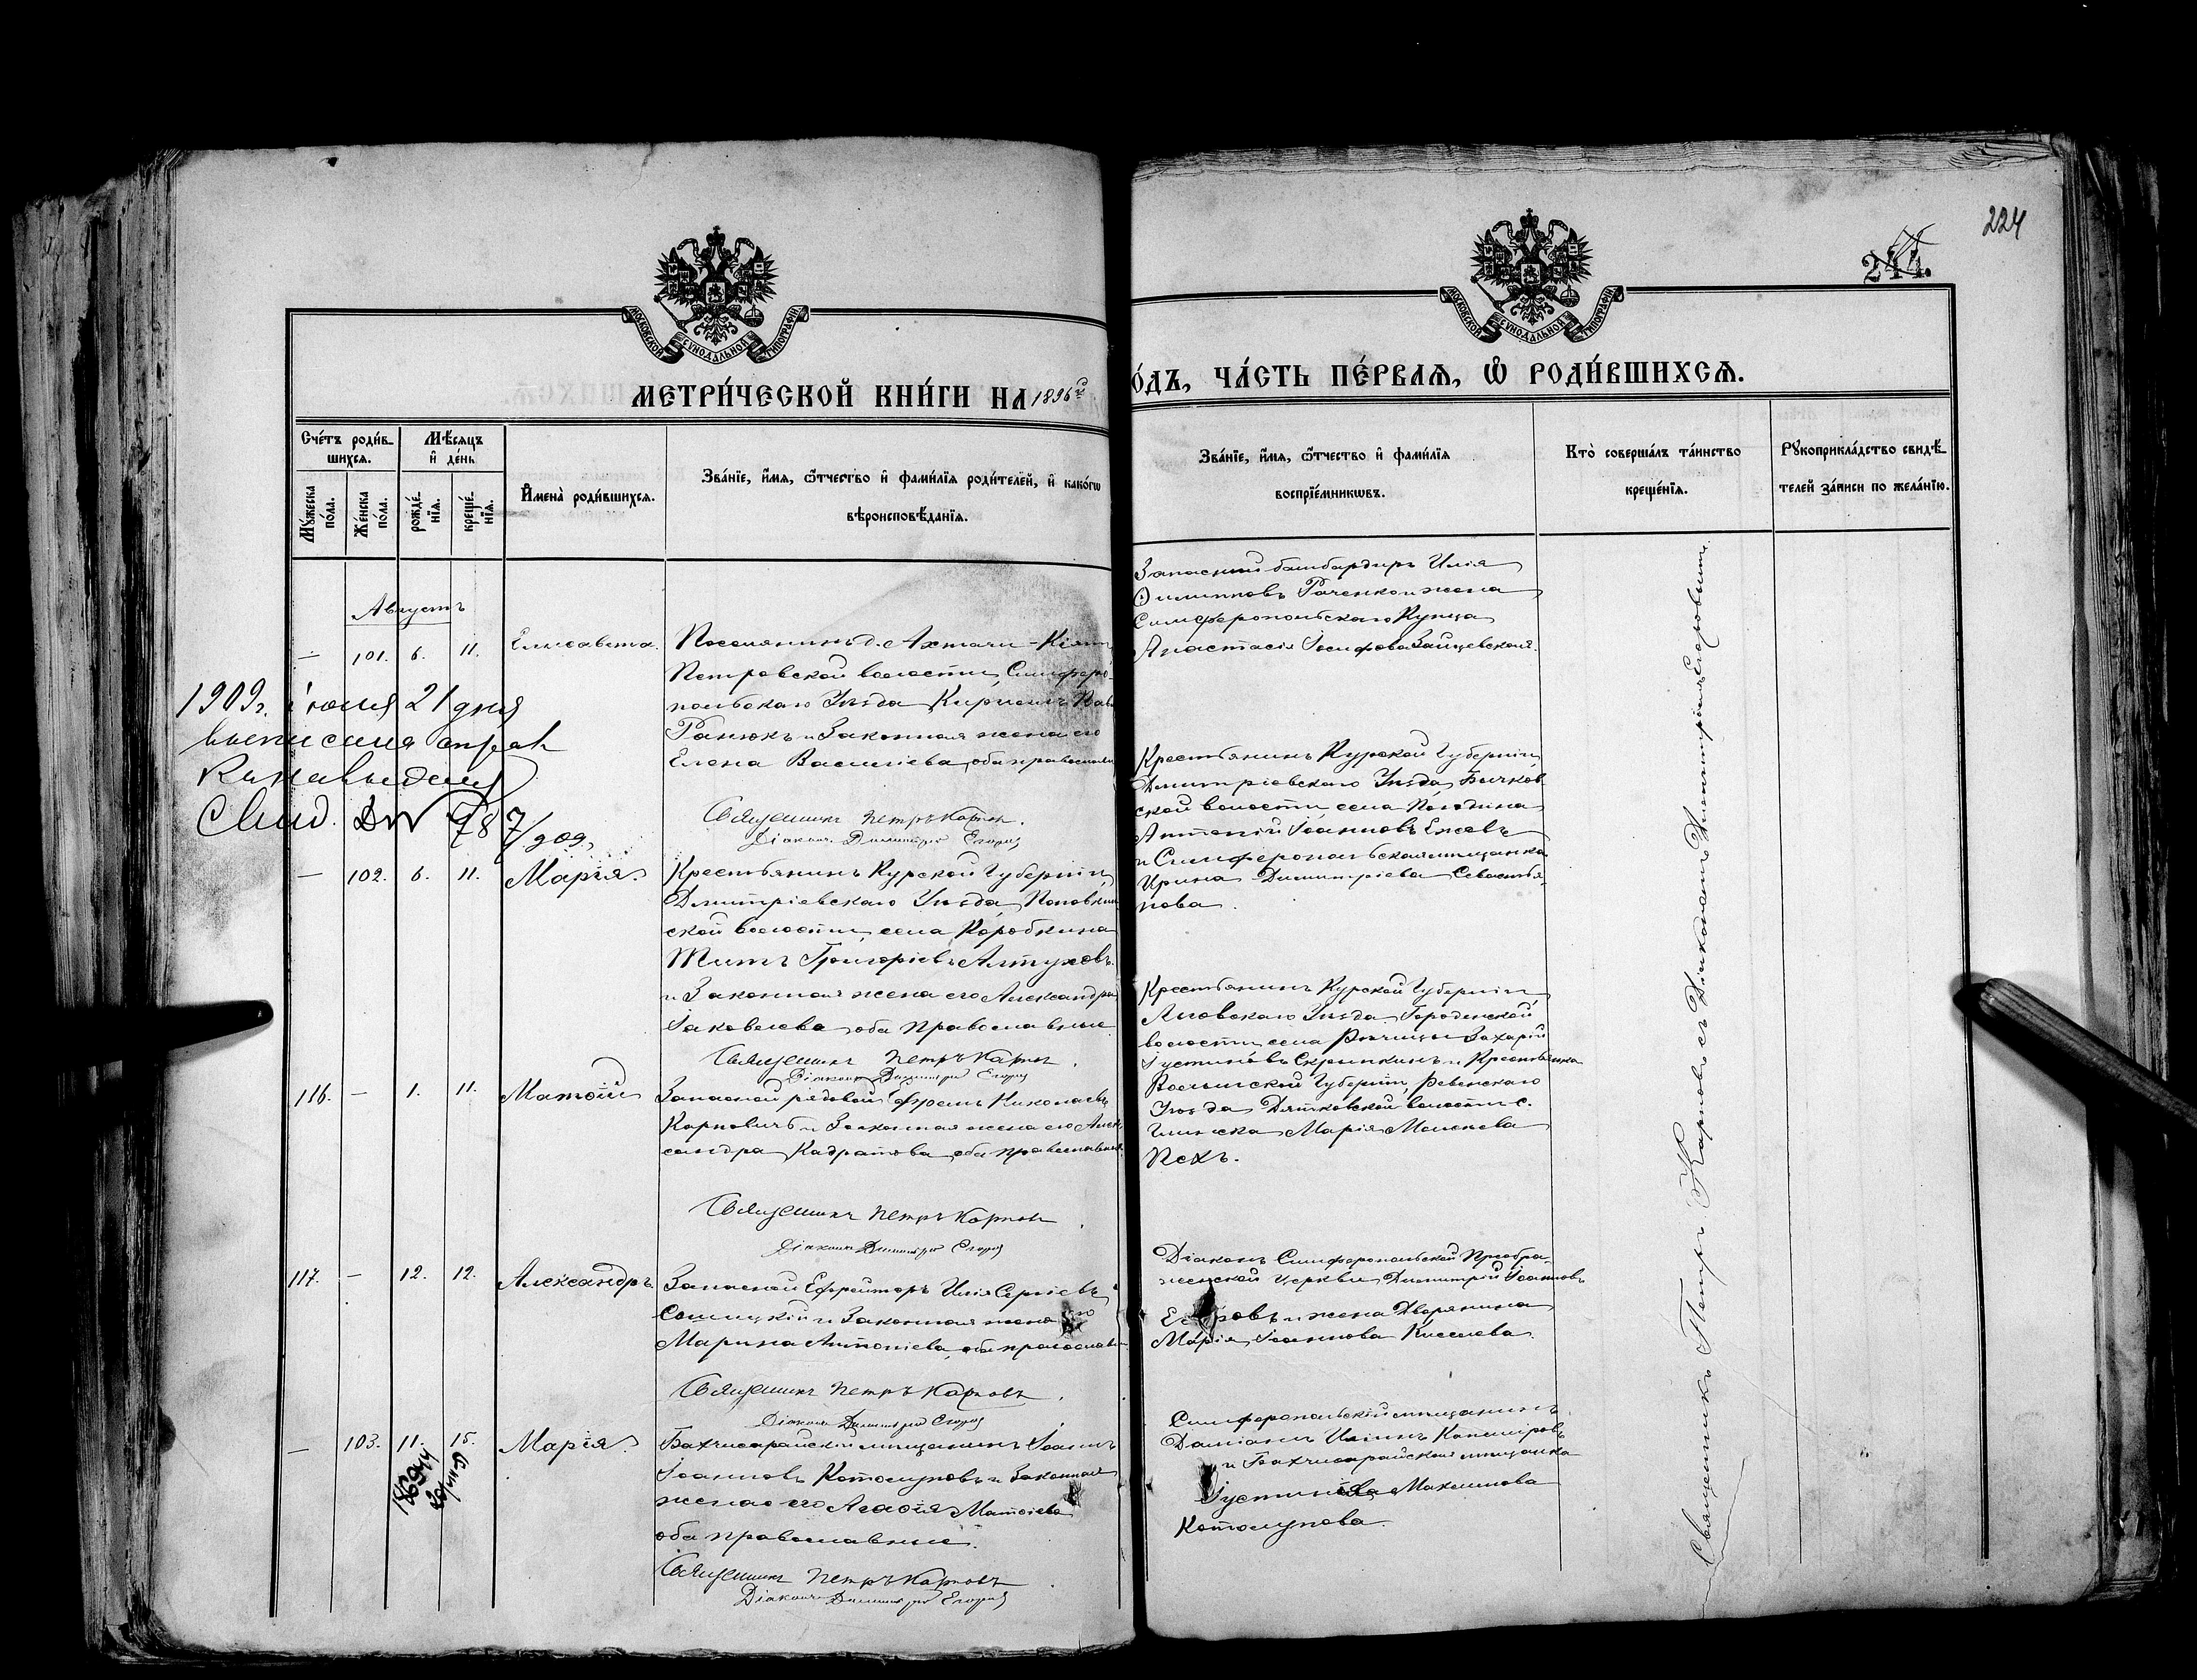 224
244.
МОСКОВСКОЙ СѴНОДАЛЬНОЙ ТИПОГРАФІИ
МОСКОВСКОЙ СѴНОДАЛЬНОЙ ТИПОГРАФІИ
МЕТРИ́ЧЕСКОЙ КНИ́ГИ НА 1896 го́дъ, ЧА́СТЬ ПЕ́РВАѦ, Ѡ҆ РОДИ́ВШИХСѦ.
Сче́тъ роди́в-
шихсѧ.
Мꙋ́жеска по́ла.
Же́нска по́ла.
Мѣ́сѧцъ
и҆ де́нь
рожде́-
нїѧ.
креще́-
нїѧ.
И҆мена̀ роди́вшихсѧ.
Зва́нїе, и҆́мѧ, ѻ҆́тчество и҆ фами́лїѧ роди́телей, и҆ како́гѡ
вѣроисповѣ́данїѧ.
Зва́нїе, и҆́мѧ, ѻ҆́тчество и҆ фами́лїѧ
воспрїе́мникѡвъ.
Кто̀ соверша́лъ та́инство
креще́нїѧ.
Рꙋкоприкла́дство свидѣ́-
телей за́писи по жела́нїю.
Августъ
— 101. 6. 11. Елисавета.
Поселянинъ д. Ахтачи-Кіятъ
Петровской волости, Симферо-
польскаго Уѣзда Кирилъ
Ранюкъ и Законная жена его
Елена Василіева, оба православные
Священникъ Петръ Карповъ.
Діаконъ Димитрій Егоровъ
Запасный бомбардиръ Илія
Филипповъ Раченко и жена
Симферопольскаго Купца
Анастасія Іосифова Зайцевская.
1909г. іюля 21 дня
выписана
Свид. № 987/909,
— 102. 6. 11. Марія.
Крестьянинъ Курской Губерніи,
Дмитріевскаго Уѣзда,
ской волости, села Коробкина
Титъ Григорієвъ Алтуховъ
и Законная жена его Александра
Іаковлева, оба православные
Священникъ Петръ Карповъ.
Діаконъ Димитрій Егоровъ
Крестьянинъ Курской Губерніи,
Дмитріевскаго Уѣзда,
ской волости, села
Антоній Іоанновъ
и Симферопольская мѣщанка
Ирина Димитріева Севастья-
нова.
116. — 1. 11. Матѳій
Запасной рядовой Николаевъ
Карповичъ и Законная жена его Алек-
сандра оба православные.
Священникъ Петръ Карповъ.
Діаконъ Димитрій Егоровъ
Крестьянинъ Курской Губерніи,
Льговскаго Уѣзда,
волости, села Захарій
Іустиновъ Скрипкинъ и Крестьянка
Волынской Губерніи, Ровенскаго
Уѣзда Дятковской волости с.
Глинска Марія
Пехъ.
117. — 12. 12. Александръ
Запасной Ефрейторъ Илія Сергіевъ
и Законная жена его
Марина Антоніева, оба православные
Священникъ Петръ Карповъ.
Діаконъ Димитрій Егоровъ
Діаконъ Симферопольской Преобра-
женской церкви Димитрій Іоанновъ
Егоровъ и жена Дворянина
Марія Іоаннова Киселева.
— 103. 11. 15. Марія.
Бахчисарайскій мѣщанинъ Іоаннъ
Іоанновъ Котолуповъ и Законная
жена его Агаѳія Матѳіева
оба православные.
Священникъ Петръ Карповъ
Діаконъ Димитрій Егоровъ
Симферопольскій мѣщанинъ
Даміанъ Иліинъ
и Бахчисарайская мѣщанка
Максимова
Котолупова
Священникъ Петръ Карповъ съ Діакономъ Димитріемъ Егоровымъ